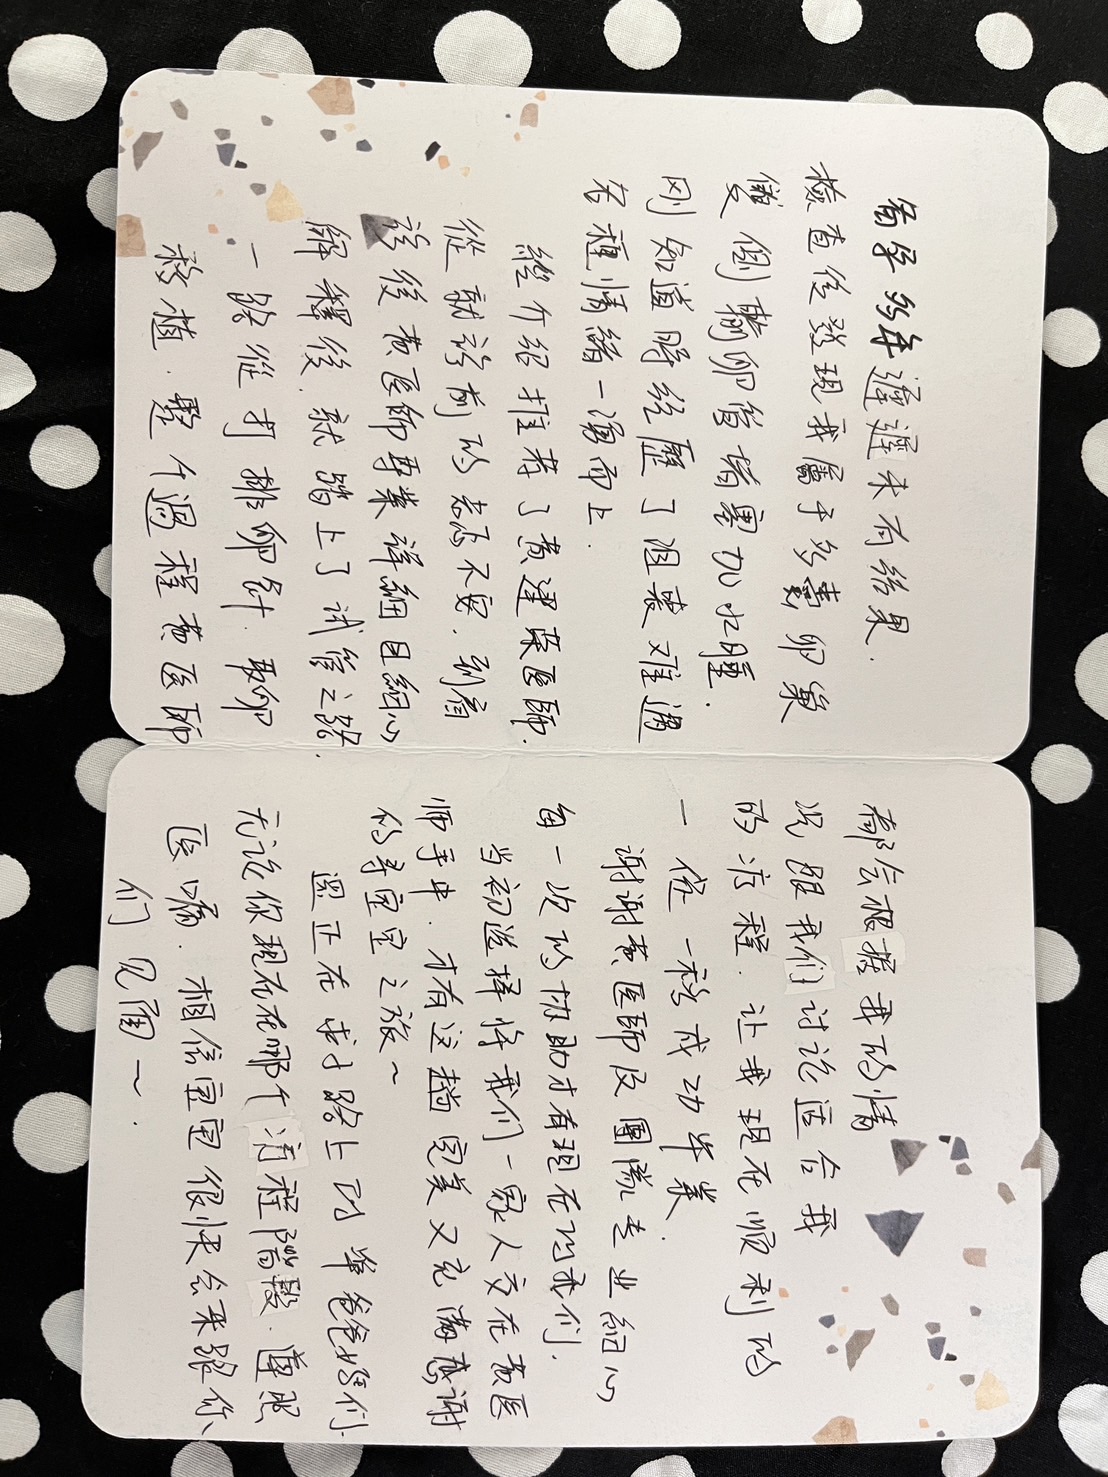 备孕多年遲遲未有結果.
檢查後發現我屬于多囊卵巢
雙側輸卵管堵塞加水腫.
刚知道時经歷了沮喪难過
各種情緒一湧而上.
經介紹推荐了黄建荣医師.
從就診前的忐忑不安.到看
診後黄医師專業詳細且細心
解釋後.就踏上了试管之路.
一路從打排卵針.取卵
移植.整个過程黄医師
都会根据我的情
况跟我们讨论适合我
的疗程.让我现在顺利的
一促一移成功毕業.
谢谢黄医師及團隊专业細心
每一次的协助才有现在的我们.
当初选择将我们一家人交在黄医
师手中.才有这趟完美又充滿感谢
的寻宝宝之旅~
還正在求子路上的準爸爸妈们.
无论你现在在哪个疗程階段.遵照
医嘱.相信宝宝很快会来跟你
们见面~.